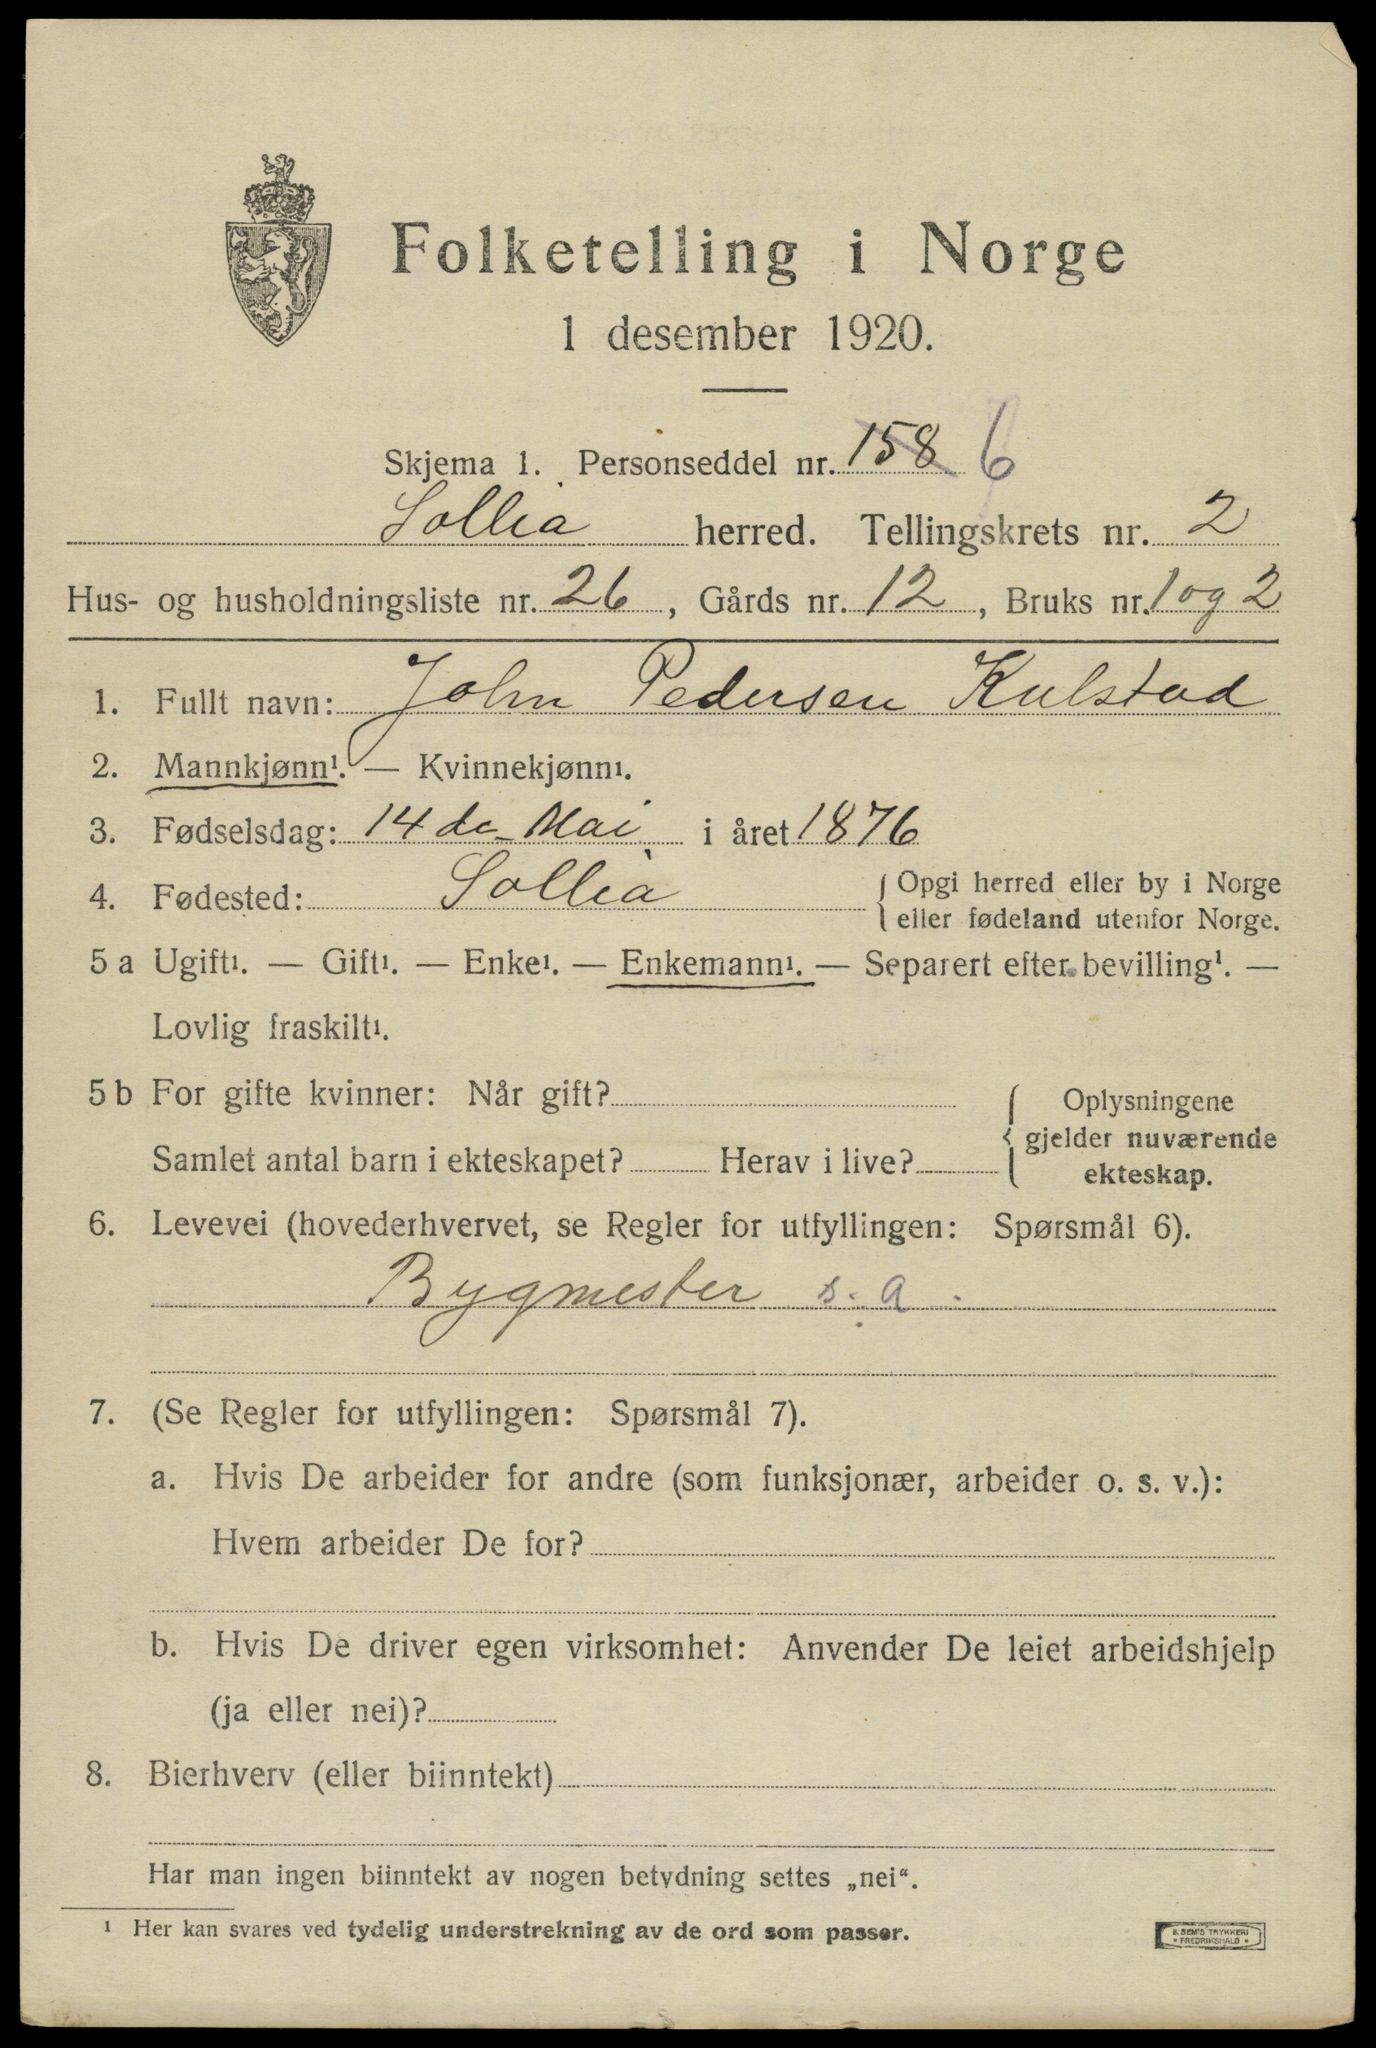 Folketelling i Norge
1 desember 1920.
Skjema 1. Personseddel nr. 158 6
Sollia herred. Tellingskrets nr. 2
Hus- og husholdningsliste nr. 26, Gårds nr. 12, Bruks nr. 1 og 2
1. Fullt navn: John Pedersen Kulstad
2. Mannkjønn¹. — Kvinnekjønn¹.
3. Fødselsdag: 14de Mai i året 1876
4. Fødested: Sollia { Opgi herred eller by i Norge
eller fødeland utenfor Norge.
5 a Ugift¹. — Gift¹. — Enke¹. — Enkemann¹. — Separert efter bevilling¹. —
Lovlig fraskilt¹.
5 b For gifte kvinner: Når gift?
Samlet antal barn i ekteskapet? Herav i live?
{ Oplysningene
gjelder nuværende
ekteskap.
6. Levevei (hovederhvervet, se Regler for utfyllingen: Spørsmål 6).
Bygmester s. a.
7. (Se Regler for utfyllingen: Spørsmål 7).
a. Hvis De arbeider for andre (som funksjonær, arbeider o. s. v.):
Hvem arbeider De for?
b. Hvis De driver egen virksomhet: Anvender De leiet arbeidshjelp
(ja eller nei)?
8. Bierhverv (eller biinntekt)
Har man ingen biinntekt av nogen betydning settes „nei“.
¹ Her kan svares ved tydelig understrekning av de ord som passer.
E. SEM'S TRYKKERI
• FREDRIKSHALD •